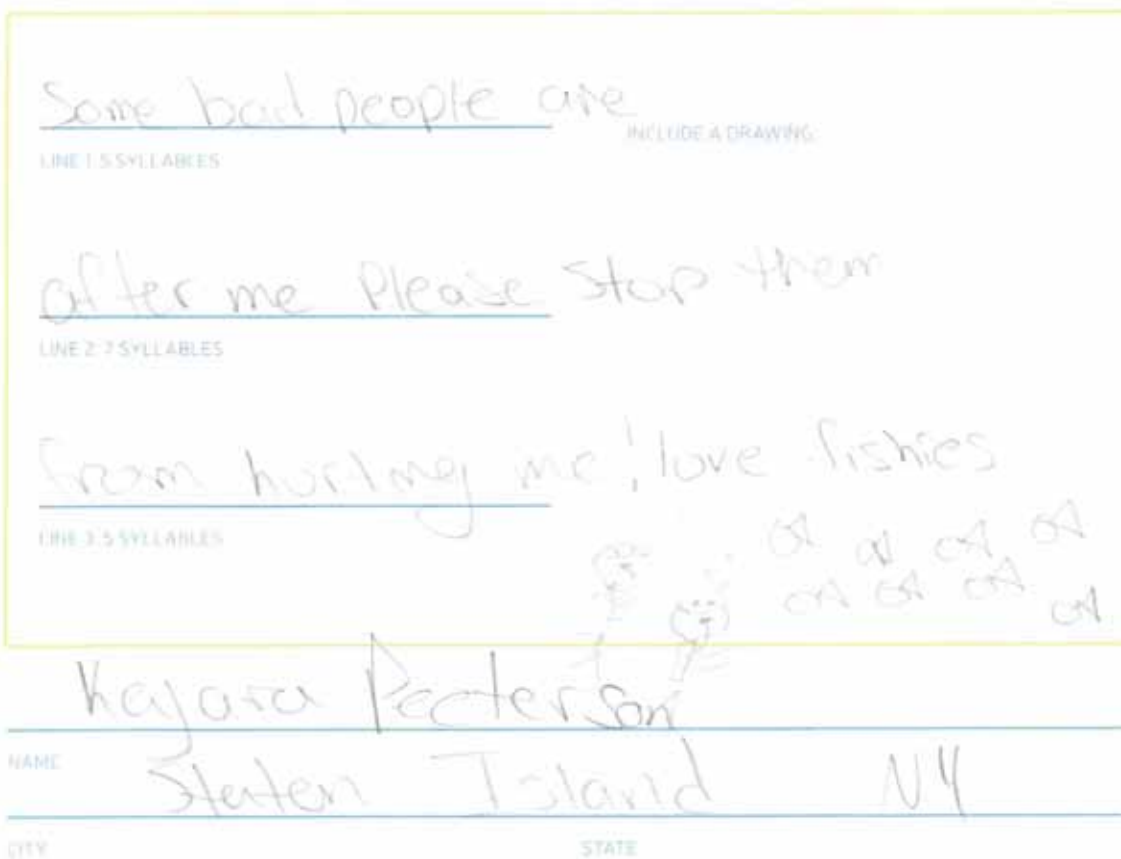 Some bad people are
INCLUDE A DRAWING
LINE 1: 5 SYLLABLES
after me Please stop them
LINE 2: 7 SYLLABLES
from hurting me! love fishies
LINE 3: 5 SYLLABLES
Peeterson
NAME
Staten Island NY
CITY STATE